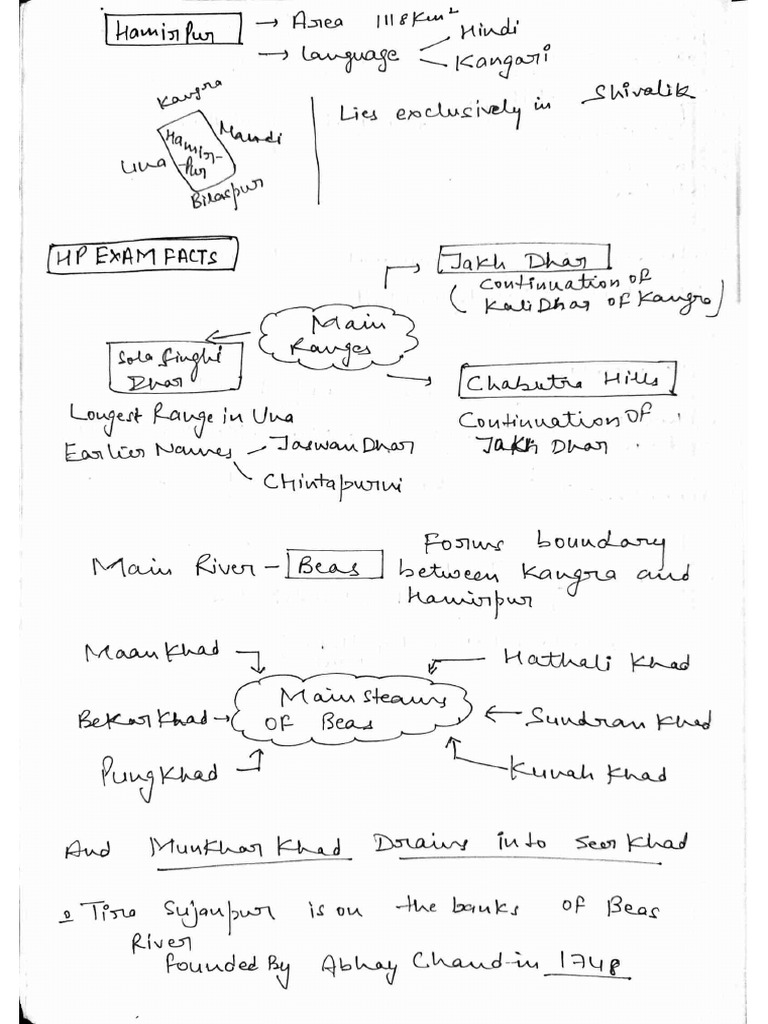 Hamirpur → Area 1118 Km²
→ Language
Hindi
Kangari
Kangra
Mandi
Hamir-
-Pur
Una
Bilaspur
Lies exclusively in Shivalik
HP EXAM FACTS
Main
Ranges
Jakh Dhar
(Continuation of
Kali Dhar of Kangra)
Sola Singhi
Dhar
Longest Range in Una
Earlier Names
Jaswan Dhar
Chintapurni
Chabutra Hills
Continuation of
Jakh Dhar
Main River - Beas
Forms boundary
between Kangra and
Hamirpur
Maan Khad
Bekar Khad
Pung Khad
Main steams
of Beas
Hathali Khad
Sundran Khad
Kunah Khad
And Munkhar Khad Drains into Seer Khad
Tira Sujanpur is on the banks of Beas
River
founded By Abhay Chand in 1748